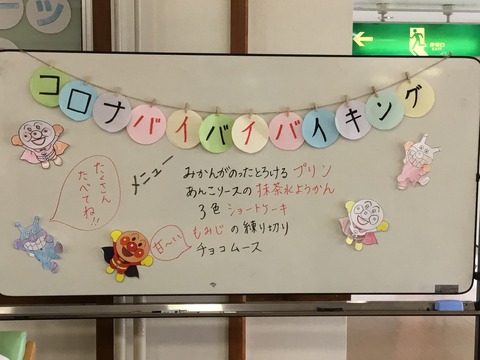 コロナバイバイバイキング
メニュー
みかんがのったとろけるプリン
あんこソースの抹茶水ようかん
3色ショートケーキ
もみじの練り切り
チョコムース
たくさん
たべてね!!
甘〜い